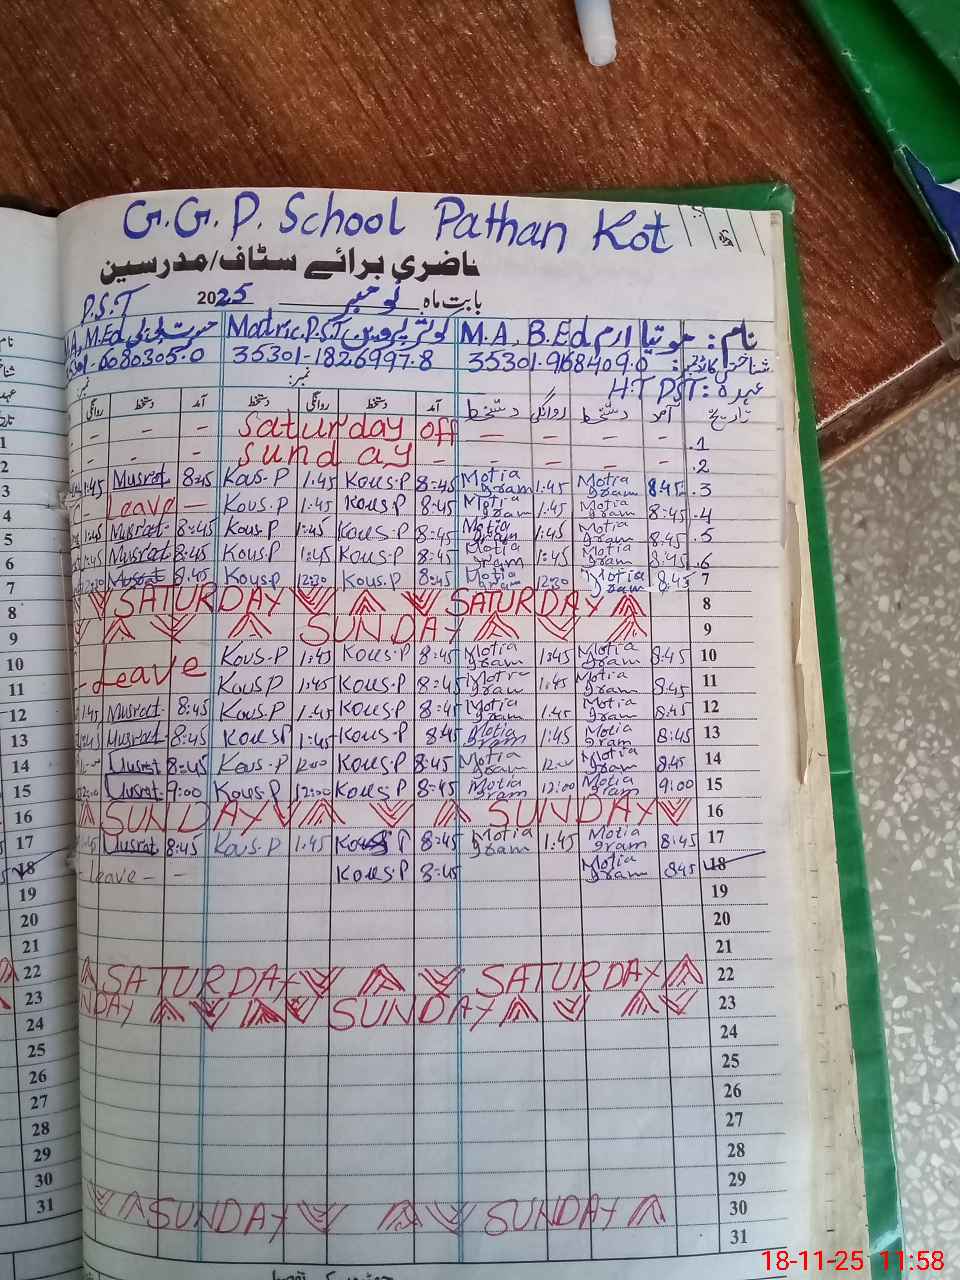 G.G.P. School Pathan Kot
حاضری برائے سٹاف/مدرسین
بابت ماہ نومبر 2025 P.S.T
نام: موتیا ارم M.A, B.Ed کوثر پروین Matric, P.S.T M.A, M.Ed
شناختی کارڈ نمبر: 35301-968409.0 35301-1826997.8 6080305.0
عہدہ: H.T PST نمبر:
تاریخ آمد دستخط روانگی دستخط آمد دستخط روانگی دستخط آمد دستخط روانگی
- - - Saturday off - - - - 1
- - - Sunday - - - - 2
1:45 Musrat 8:45 Kous.P 1:45 Kous.P 8:45 Motia Iram 1:45 Motia Iram 8:45 3
- Leave - Kous.P 1:45 Kous.P 8:45 Motia Iram 1:45 Motia Iram 8:45 4
1:45 Musrat 8:45 Kous.P 1:45 Kous.P 8:45 Motia Iram 1:45 Motia Iram 8:45 5
1:45 Musrat 8:45 Kous.P 1:45 Kous.P 8:45 Motia Iram 1:45 Motia Iram 8:45 6
12:30 Musrat 8:45 Kous.P 12:30 Kous.P 8:45 Motia Iram 12:30 Motia Iram 8:45 7
SATURDAY SATURDAY 8
SUNDAY 9
Leave Kous.P 1:45 Kous.P 8:45 Motia Iram 1:45 Motia Iram 8:45 10
Kous P 1:45 Kous.P 8:45 Motia Iram 1:45 Motia Iram 8:45 11
1:45 Musrat 8:45 Kous.P 1:45 Kous.P 8:45 Motia Iram 1:45 Motia Iram 8:45 12
1:45 Musrat 8:45 Kous P 1:45 Kous.P 8:45 Motia Iram 1:45 Motia Iram 8:45 13
Musrat 8:45 Kous.P 12:00 Kous.P 8:45 Motia Iram 12:00 Motia Iram 8:45 14
12:00 Musrat 9:00 Kous.P 12:00 Kous.P 8:45 Motia Iram 12:00 Motia Iram 9:00 15
SUNDAY SUNDAY 16
1:45 Musrat 8:45 Kous.P 1:45 Kous P 8:45 Motia Iram 1:45 Motia Iram 8:45 17
- Leave - - Kous.P 8:45 Motia Iram 8:45 18
19
20
21
SATURDAY SATURDAY 22
SUNDAY SUNDAY 23
24
25
26
27
28
29
SUNDAY SUNDAY 30
31
18-11-25 11:58